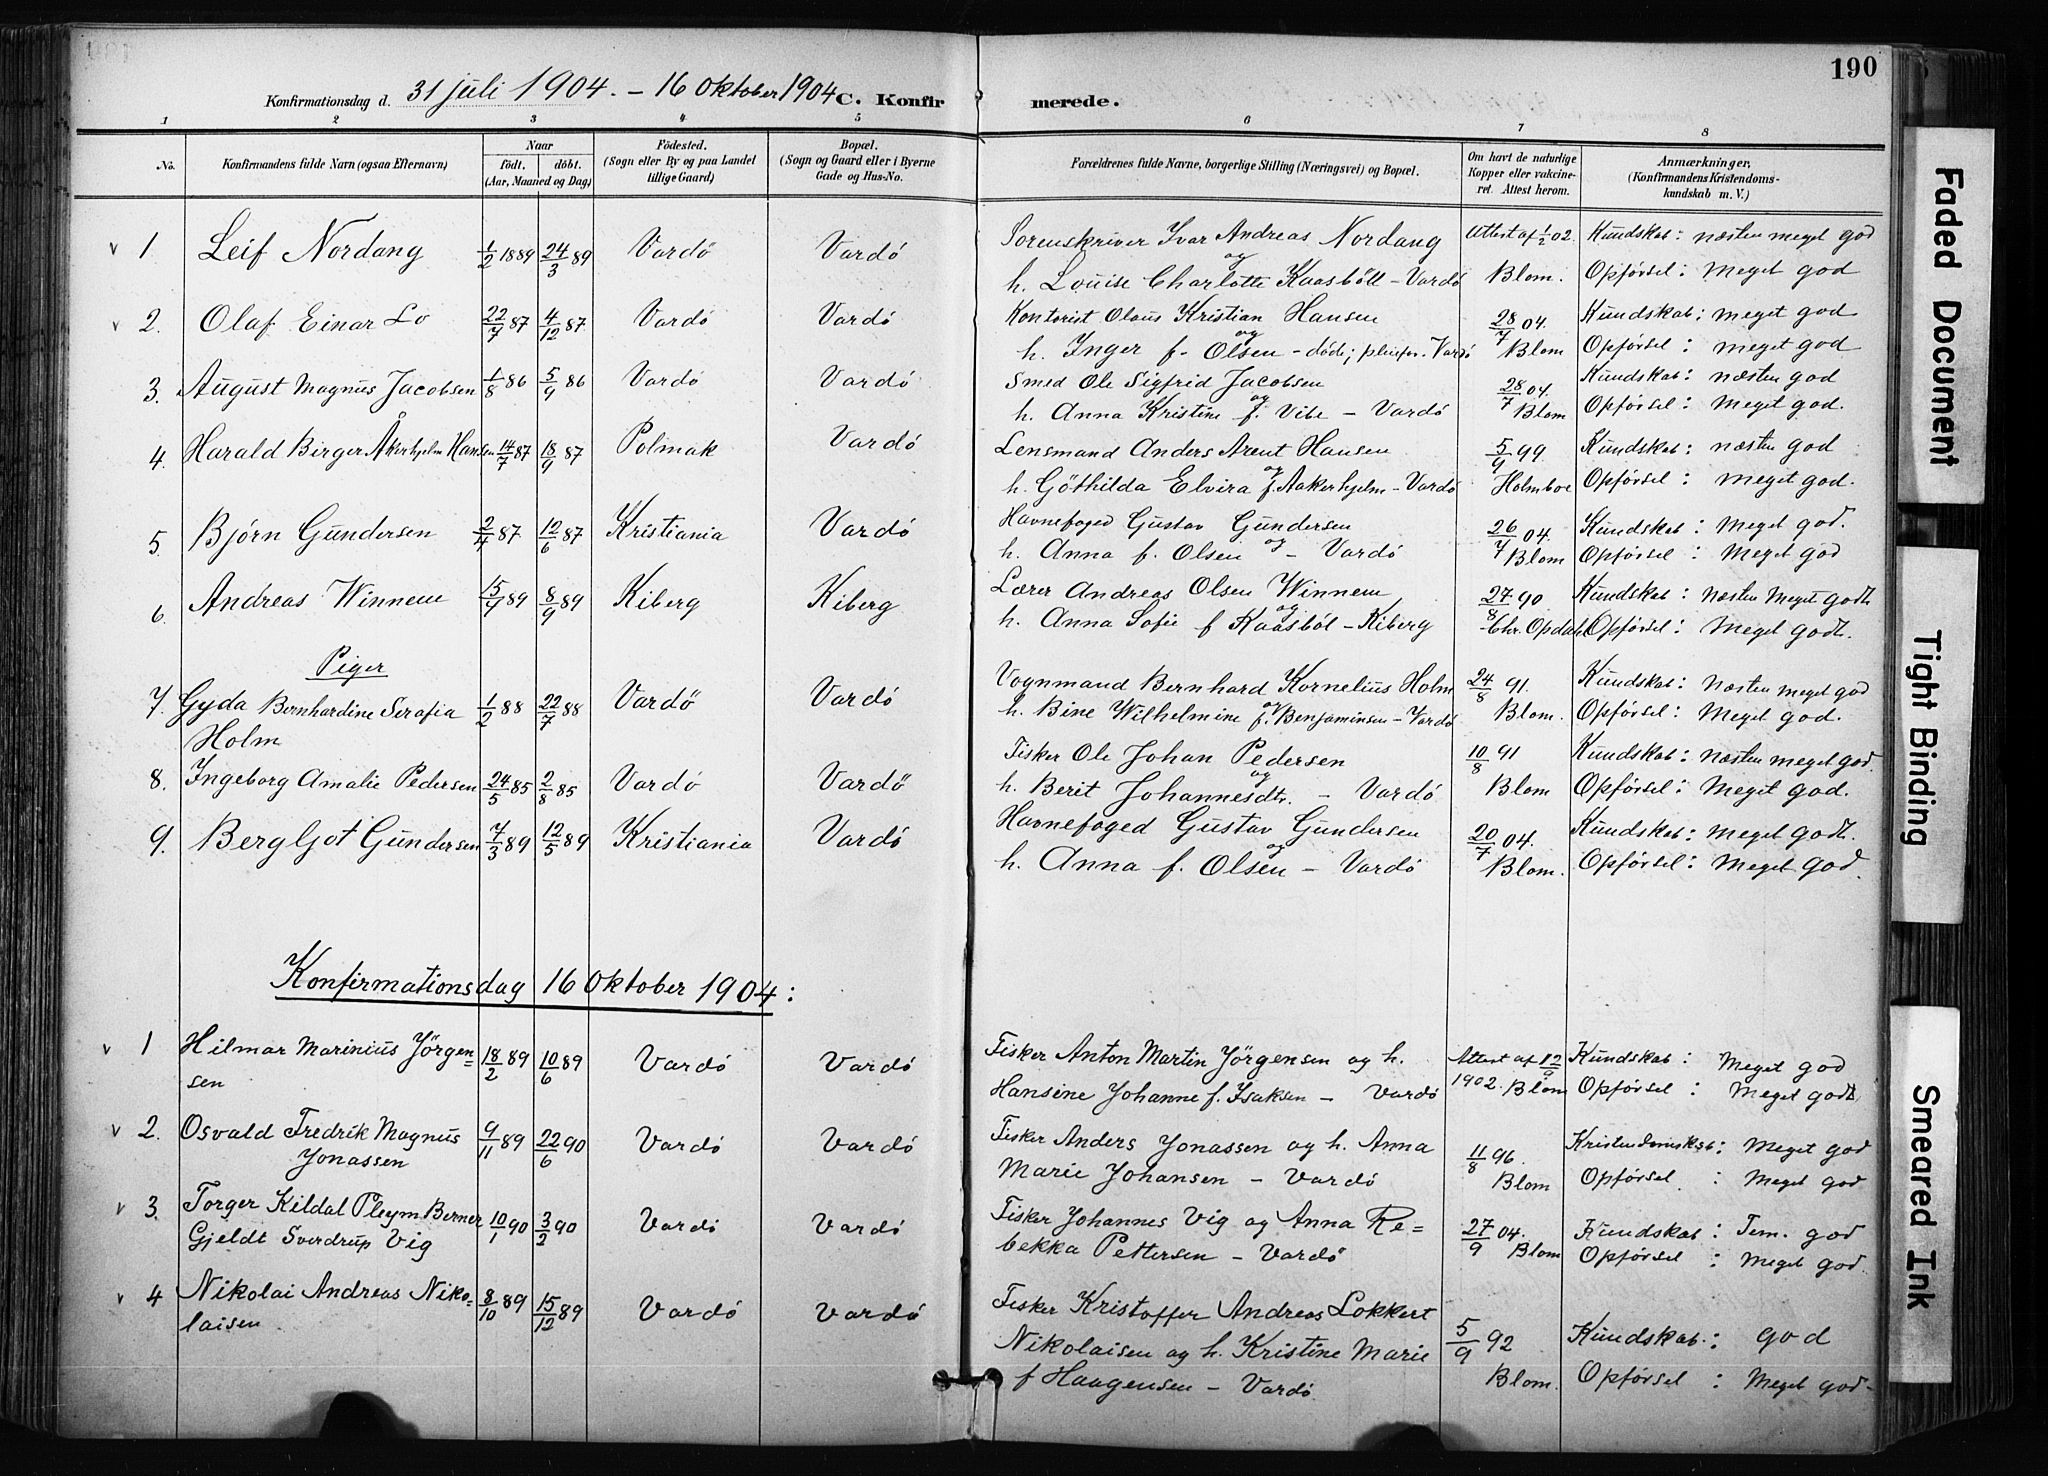 190
Konfirmationsdag d. 31 juli 1904. – 16 Oktober 1904 C. Konfirmerede.
1 2 3 4 5 6 7 8
No. Konfirmandens fulde Navn (ogsaa Efternavn) Naar födt. döbt. (Aar, Maaned og Dag) Födested. (Sogn eller By og paa Landet tillige Gaard) Bopæl. (Sogn og Gaard eller i Byerne Gade og Hus-No. Forældrenes fulde Navne, borgerlige Stilling (Næringsvei) og Bopæl. Om havt de naturlige Kopper eller vakcineret. Attest herom. Anmærkninger. (Konfirmandens Kristendomskundskab m. V.)
v 1 Leif Nordang 1/2 1889 24/3 89 Vardö Vardö Sorenskriver Ivar Andreas Nordang Attest af 1/2 02. Kundskab: næsten meget god
og
h. Louise Charlotte Kaasböll – Vardö Blom. Opførsel: Meget god
v 2. Olaf Einar Lo 22/7 87 4/12 87 Vardö Vardö Kontorist Olaus Kristian Hansen 28/7 04. Kundskab: meget god
og
h. Inger f. Olsen – döde; pleiefor. Vardö Blom Opførsel: meget god
3. August Magnus Jacobsen 1/8 86 5/9 86 Vardö Vardö Smed Ole Sigfrid Jacobsen 28/7 04. Kundskab: næsten god
og
h. Anna Kristine f. Vibe – Vardö Blom Opförsel: Meget god.
4. Harald Birger Åkerhjelm Hansen 14/7 87 18/9 87 Polmak Vardö Lensmand Anders Arent Hansen 5/9 99 Kundskab: næsten god
og
h. Göthilda Elvira f. Aakerhjelm – Vardö Holmboe Opförsel: Meget god.
5. Bjørn Gundersen 2/4 87 12/6 87 Kristiania Vardö Havnefoged Gustav Gundersen 26/7 04. Kundskab: Meget god.
og
h. Anna f. Olsen – Vardö Blom Opførsel: Meget god
6. Andreas Winnem 15/7 89 8/9 89 Kiberg Kiberg Lærer Andreas Olsen Winnem 27/8 90 Kundskab: Næsten Meget godt
og
h. Anna Sofie f Kaasböl – Kiberg Chr. Opdahl Opförsel: Meget godt.
Piger
7. Gyda Bernhardine Serafia 1/2 88 22/7 88 Vardö Vardö Vognmand Bernhard Kornelius Holm 24/8 91. Kundskab: Næsten meget god
og
Holm h. Bine Wilhelmine f. Benjaminsen – Vardö Blom. Opførsel: Meget god.
8. Ingeborg Amalie Pedersen 24/5 85 2/8 85 Vardö Vardö Fisker Ole Johan Pedersen 10/8 91 Kundskab: næsten meget god
og
h. Berit Johannesdtr. – Vardö Blom Opførsel: Meget god.
9. Bergljot Gundersen 7/3 89 12/5 89 Kristiania Vardö Havnefoged Gustav Gundersen 20/7 04. Kundskab: Meget godt.
og
h. Anna f. Olsen – Vardö Blom. Opførsel: Meget god.
Konfirmationsdag 16 Oktober 1904:
v 1 Hilmar Marinius Jörgen= 18/2 89 10/6 89 Vardö Vardö Fisker Anton Martin Jörgensen og h. Attest af 12/9 Kundskab: Meget god
sen Hansine Johanne f. Isaksen – Vardö 1902. Blom Opførsel: Meget godt.
v 2. Osvald Fredrik Magnus 9/11 89 22/6 90 Vardö Vardö Fisker Anders Jonassen og h. Anna 11/8 96. Kristendomskab: Meget god
Jonassen Marie Johansen – Vardö Blom Opførsel : Meget god
v 3. Torger Kildal Pleym Berner 10/1 90 3/2 90 Vardö Vardö Fisker Johannes Vig og Anna Re- 27/9 04. Kundskab: Tem. god
Gjeldt Sverdrup Vig bekka Pettersen – Vardö Blom Opførsel : Meget god
v 4 Nikolai Andreas Niko= 8/10 89 15/12 89 Vardö Vardö Fisker Kristoffer Andreas Lokkert
laisen. Nikolaisen og h. Kristine Marie 5/9 92 Kundskab: god
f Haagensen – Vardö Blom. Opførsel : Meget god.
Faded Document
Tight Binding
Smeared Ink